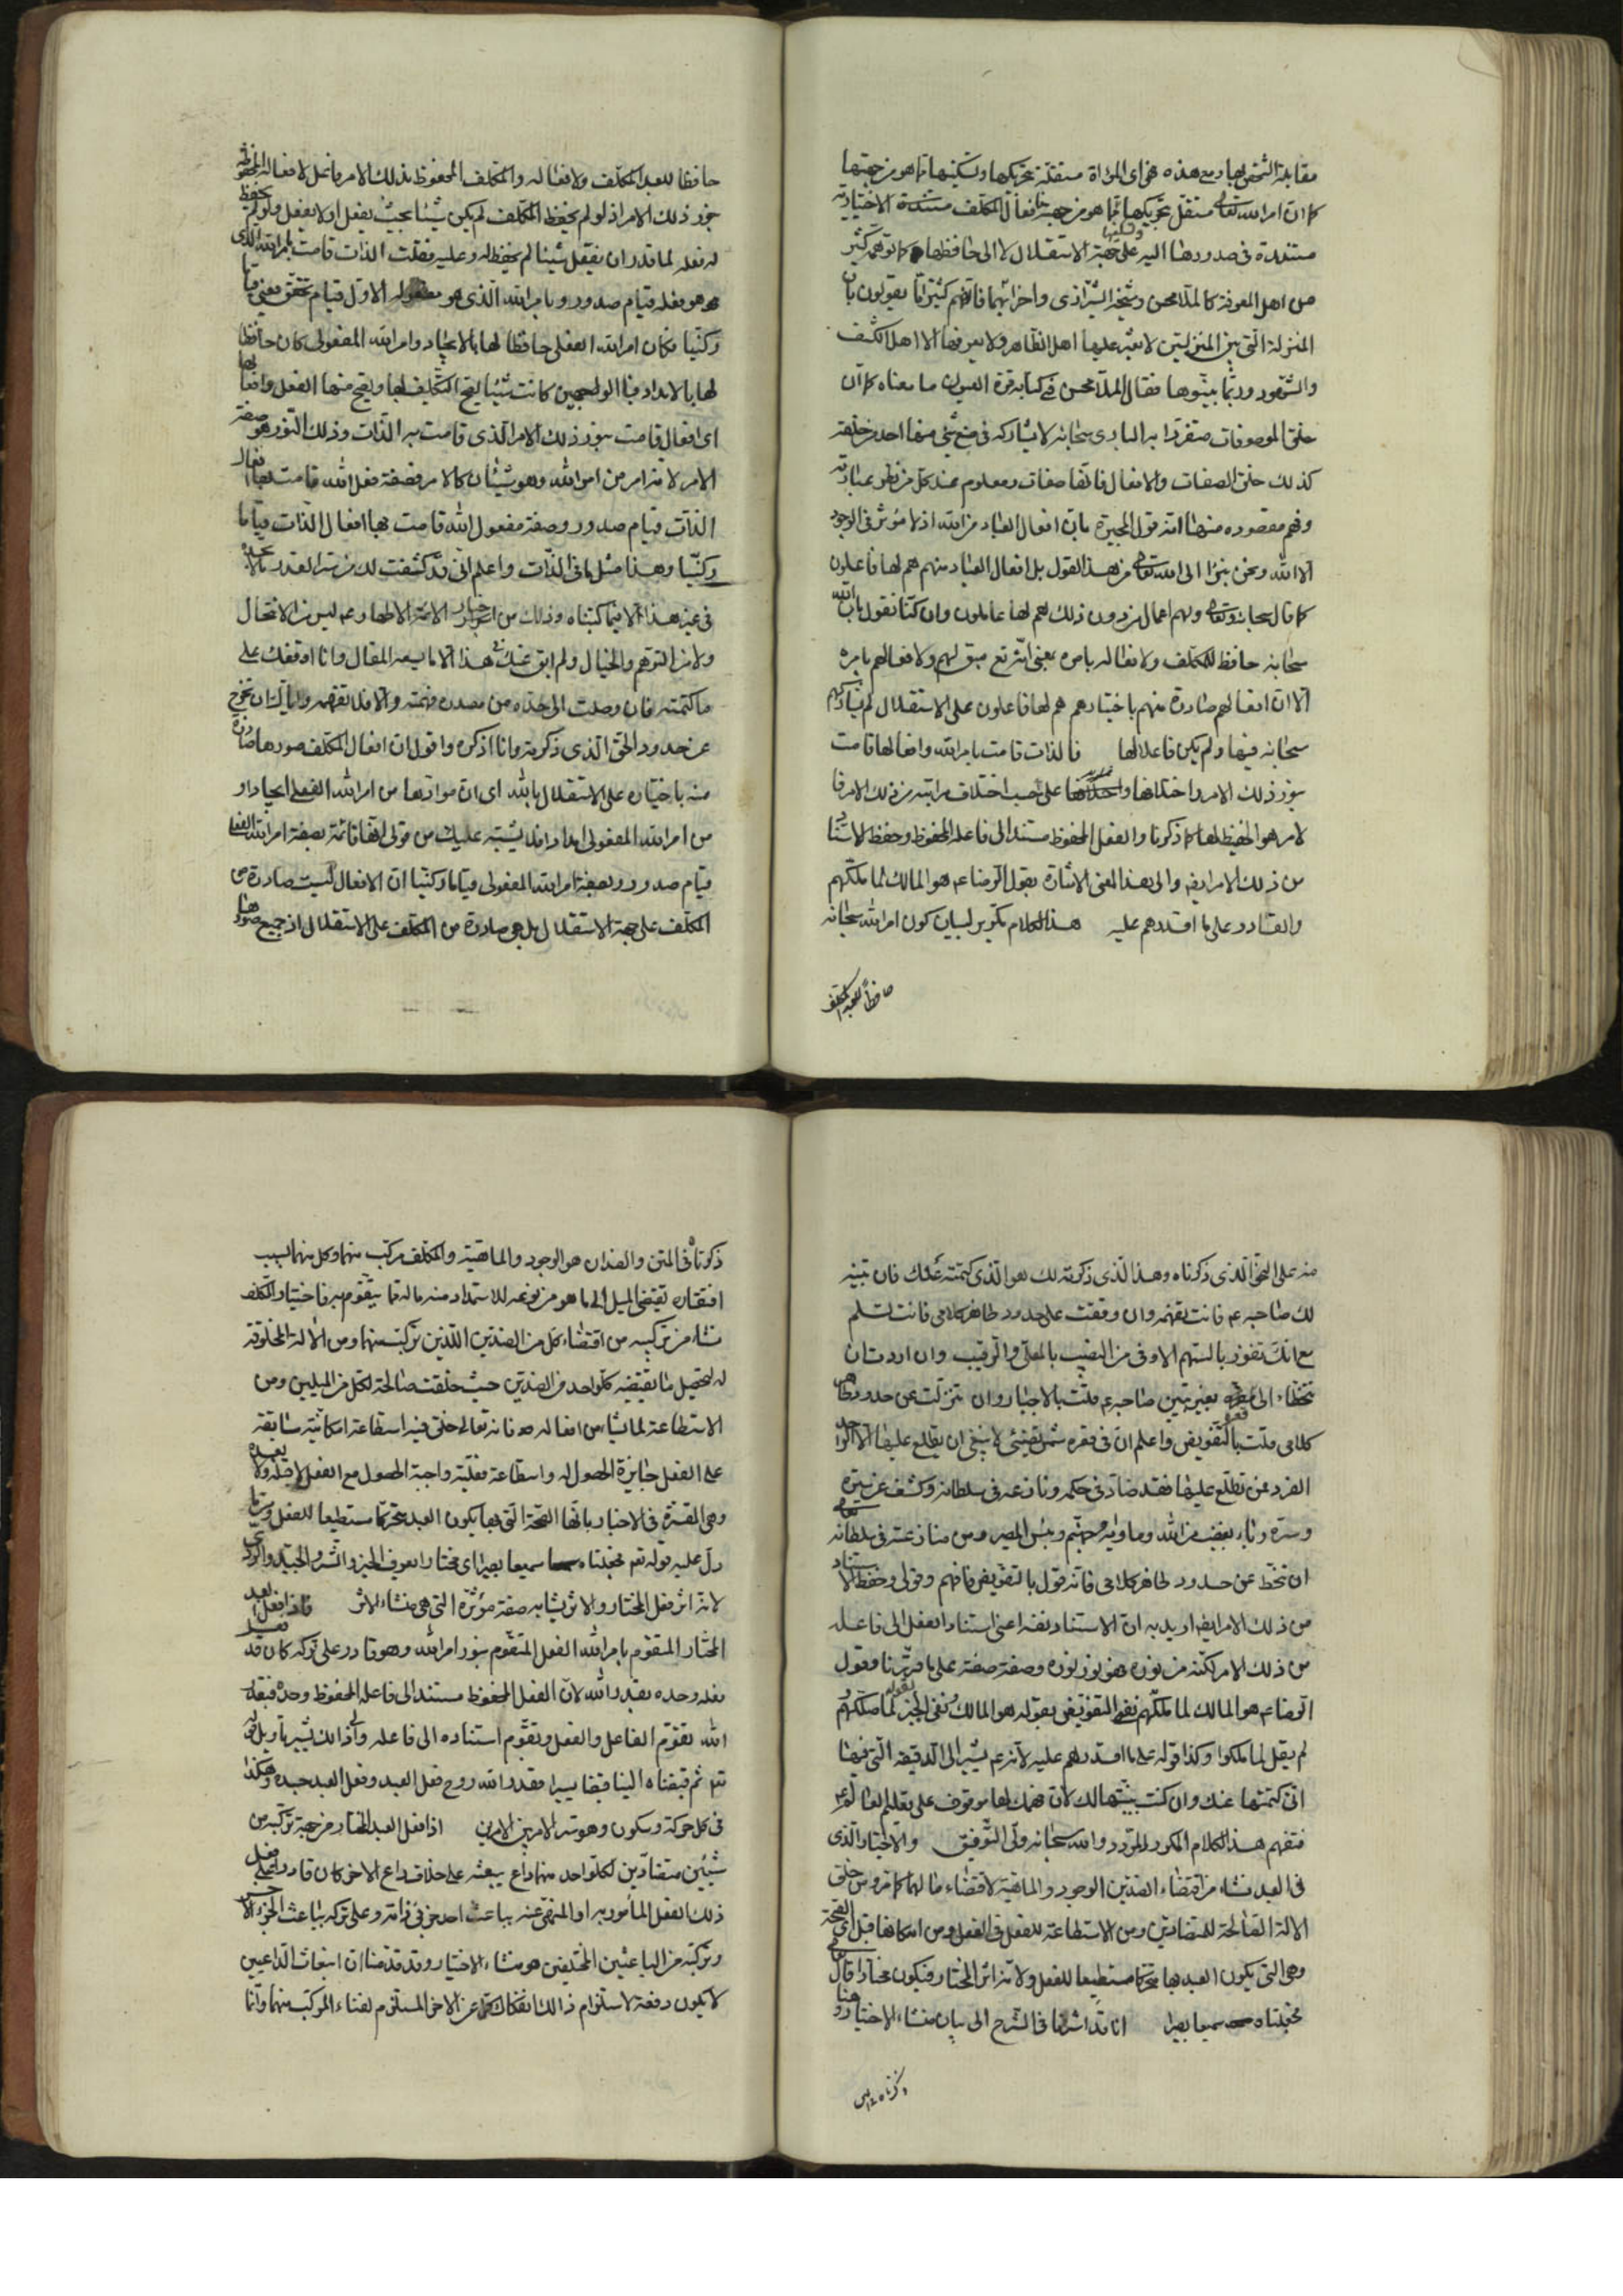 مقابلة الشخص لها ومع هذه هى اى المرآة مستقلة بتحريكها وتسكينها مما هو من جهتها
كما ان امر الله تعالى مستقل بتحريكها وتسكينها مما هو من جهته فافعال المكلف مستندة الاختيارية
مستندة فى صدورها اليه على جهة الاستقلال لا الى حافظها كما توهمه كثير
من اهل المعرفة كالملا محسن وشيخه الشيرازى واضرابهما فانهم كثيرا ما يقولون بان
المنزلة التى بين المنزلتين لا يعثر عليها اهل الظاهر ولا يعرفها الا اهل الكشف
والشهود وربما بينوها فقال الملا محسن فى كتابه قرة العيون ما معناه كما ان
خلق الموصوفات متفرد به البارى سبحانه لا يشاركه فى صنع شىء منها احد من خلقه
كذلك خلق الصفات والافعال فانها صفات ومعلوم عند كل من نظر بعبارته
وفهم مقصوده منها انه قول المجبرة بان افعال العباد من الله اذ لا مؤثر فى الوجود
الا الله ونحن نبرأ الى الله تعالى من هذا القول بل افعال العباد منهم هم لها فاعلون
كما قال سبحانه وتعالى ولهم اعمال من دون ذلك هم لها عاملون وان كنا نقول بان الله
سبحانه حافظ للمكلف ولافعاله بامره يعنى انه تع مبق لهم ولافعالهم بامره
الا ان افعالهم صادرة منهم باختيارهم هم لها فاعلون على الاستقلال لم يشاركهم
سبحانه فيها ولم يكن فاعلا لها فالذات قامت بامر الله وافعالها قامت
بنور ذلك الامر واختلافها على حسب اختلاف مراتبه من ذلك الامر فا
لامر هو الحفيظ لها كما ذكرنا والفعل المحفوظ مستند الى فاعله المحفوظ وحفظ الاستناد
من ذلك الامر ايضا والى هذا المعنى الاشارة بقول الرضا عم هو المالك لما ملكهم
والقادر على ما اقدرهم عليه هذا الكلام تكرير لبيان كون امر الله سبحانه
حافظا للعبد المكلف
حافظا للعبد المكلف ولافعاله والمكلف المحفوظ بذلك الامر فاعل لافعاله المحفوظة
بنور ذلك الامر اذ لو لم يحفظ المكلف لم يكن شيئا بحيث يفعل او لا يفعل ولو لم يحفظ
له فعله لما قدر ان يفعل شيئا لم يحفظ له وعليه فقلت الذات قامت بامر الله الذى
هو فعله قيام صدور وبامر الله الذى هو مفعوله الاول قيام تحقق يعنى قياما
ركنيا فكان امر الله الفعلى حافظا لها بالايجاد وامر الله المفعولى كان حافظا لها
لها بالامداد فبا لوجهين كانت شيئا يقع التكليف لها ويقع منها الفعل وافعالها
اى افعال قامت بنور ذلك الامر الذى قامت به الذات وذلك النور هو صفة
الامر لانه امر من امر الله وهو شيئان كالامر فصفة فعل الله قامت بها افعال
الذات قيام صدور وصفة مفعول الله قامت بها افعال الذات قياما
ركنيا وهذا مثل ما فى الذات واعلم انى قد كشفت لك من سر القدر ما لا تجده
فى غير هذا الا فيما كتبناه وذلك من اسرار اخبار الائمة الاطهار عم ليس من الانتحال
ولا من التوهم والخيال ولم ابق عنك فى هذا الا ما يسعه المقال وانا اوقفك على
ما كتمته فان وصلت الى اخذه من مصدره فهمته والا فلا تفهمه واياك ان تخرج
عن حدود الحق الذى ذكرته وانا اذكره واقول ان افعال المكلف صدورها صادرة
منه باختياره على الاستقلال بالله اى ان موادها من امر الله الفعلى ايجادا و
من امر الله المفعولى امدادا فلا يشتبه عليك من قولى انها قائمة بصفة امر الله الفعلى
قيام صدور وبصفة امر الله المفعولى قياما ركنيا ان الافعال ليست صادرة من
المكلف على جهة الاستقلال بل هى صادرة من المكلف على الاستقلال اذ جميع صدورها
منه على النحو الذى ذكرناه وهذا الذى ذكرته لك هو الذى كتمته عنك فان تبينه
لك صاحبه عم فانت تفهمه وان وقفت على حدود ظاهر كلامى فانت تسلم
مع انك تفوز بالسهم الاوفى من النصيب بالمعلى والرقيب وان اردت ان
تتخطاه الى غيره بغير تبيين صاحبه عم قلت بالاجبار وان تنزلت عن حدود ظاهر
كلامى قلت بالتفويض واعلم ان فى قعره شمس تضىء لا ينبغى ان يطلع عليها الا الواحد
الفرد فمن تطلع عليها فقد ضاد الله فى حكمه ونازعه فى سلطانه وكشف عن ستره
وسره وباء بغضب من الله وماواه جهنم وبئس المصير ومن منازعته فى سلطانه تعالى
ان تنحط عن حدود ظاهر كلامى فانه قول بالتفويض فافهم وقولى وحفظ الاستناد
من ذلك الامر ايضا اريد به ان الاستناد نفسه اعنى استناد الفعل الى فاعله
من ذلك الامر لكنه من نوره فهو نور نوره وصفة صفته على ما قررنا وقول
الرضا عم هو المالك لما ملكهم نفى التفويض بقوله هو المالك ونفى الجبر بقوله لما ملكهم و
لم يقل لما ملكوا وكذا قوله على ما اقدرهم عليه لانه عم يشير الى الدقيقة التى فيها
انى كتمتها عنك وان كنت بينتها لك لان فهمك لها موقوف على تعليم العالم عم
فتفهم هذا الكلام المكرر المردد والله سبحانه ولى التوفيق والاختيار الذى
فى العبد نشاء من اقتضاء الضدين الوجود والماهية لاقتضاء ما لهما كما مر ومن خلق
الآلة الصالحة للمتضادين ومن الاستطاعة للفعل فى الفعل ومن امكانها قبل اى الصحة
وهى التى يكون العبد بها متحركا مستطيعا للفعل ولانه اثر المختار فيكون مختارا قال تعالى
فجعلناه سميعا بصيرا انا قد اشرنا فى الشرح الى بيان منشاء الاختيار وهنا
ذكرناه فى
ذكرناه فى المتن والضدان هو الوجود والماهية والمكلف مركب منهما وكل منهما بسبب
افتقاره يقتضى الميل الى ما هو من نوعه للاستمداد منه ما له مما يتقوم به فاختيار المكلف
نشاء من تركيبه من اقتضاء كل من الضدين اللذين تركب منهما ومن الآلة المخلوقة
له لتحصيل ما يقتضيه كل واحد من الضدين حيث خلقت صالحة لكل من الميلين ومن
الاستطاعة لما يشاء من افعاله فانه تعالى خلق فيه استطاعة امكانية سابقة
على الفعل جايزة الحصول له واستطاعة فعلية واجبة الحصول مع الفعل لا قبله ولا بعده
وهى المفسرة فى الاخبار بانها الصحة التى بها يكون العبد متحركا مستطيعا للفعل وربما
دل عليه قوله تع فجعلناه سميعا بصيرا اى مختارا يعرف الخير والشر والجيد والردى
لانه اثر فعل المختار والاثر يشابه صفة مؤثره التى هى منشاء الاثر فاذا فعل العبد
المختار المتقوم بامر الله الفعل المتقوم بنور امر الله وهو قادر على تركه كان قد فعل
فعله وحده بقدر الله لان الفعل المحفوظ مستند الى فاعله المحفوظ وحده فبقدر
الله تقوم الفاعل والفعل وتقوم استناده الى فاعله والى ذلك يشير تاويل قوله
تع ثم قبضناه الينا قبضا يسيرا فقدر الله روح فعل العبد وفعل العبد جسده وهكذا
فى كل حركة وسكون وهو سر الامر بين الامرين اذا فعل العبد المختار من جهة تركبه من
شيئين متضادين لكل واحد منهما داع يبعثه على خلاف داع الاخر كان قادرا على فعل
ذلك الفعل المأمور به او المنهى عنه بباعث احد جزئى ذاته وعلى تركه بباعث الجزء الآخر
وتركبه من الباعثين المختلفين هو منشاء الاختيار وقد قدمنا ان انبعاث الداعيين
لا يكون دفعة لاستلزام ذلك انفكاك كل عن الاخر المستلزم لفناء المركب منهما وانما